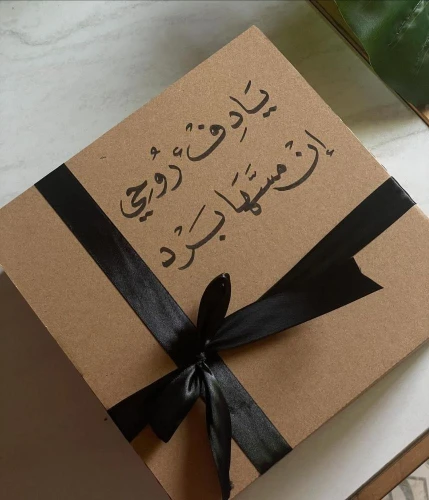 يَا دِفْءْ رُوُحِي
إنْ مسَّهَا بَرَد